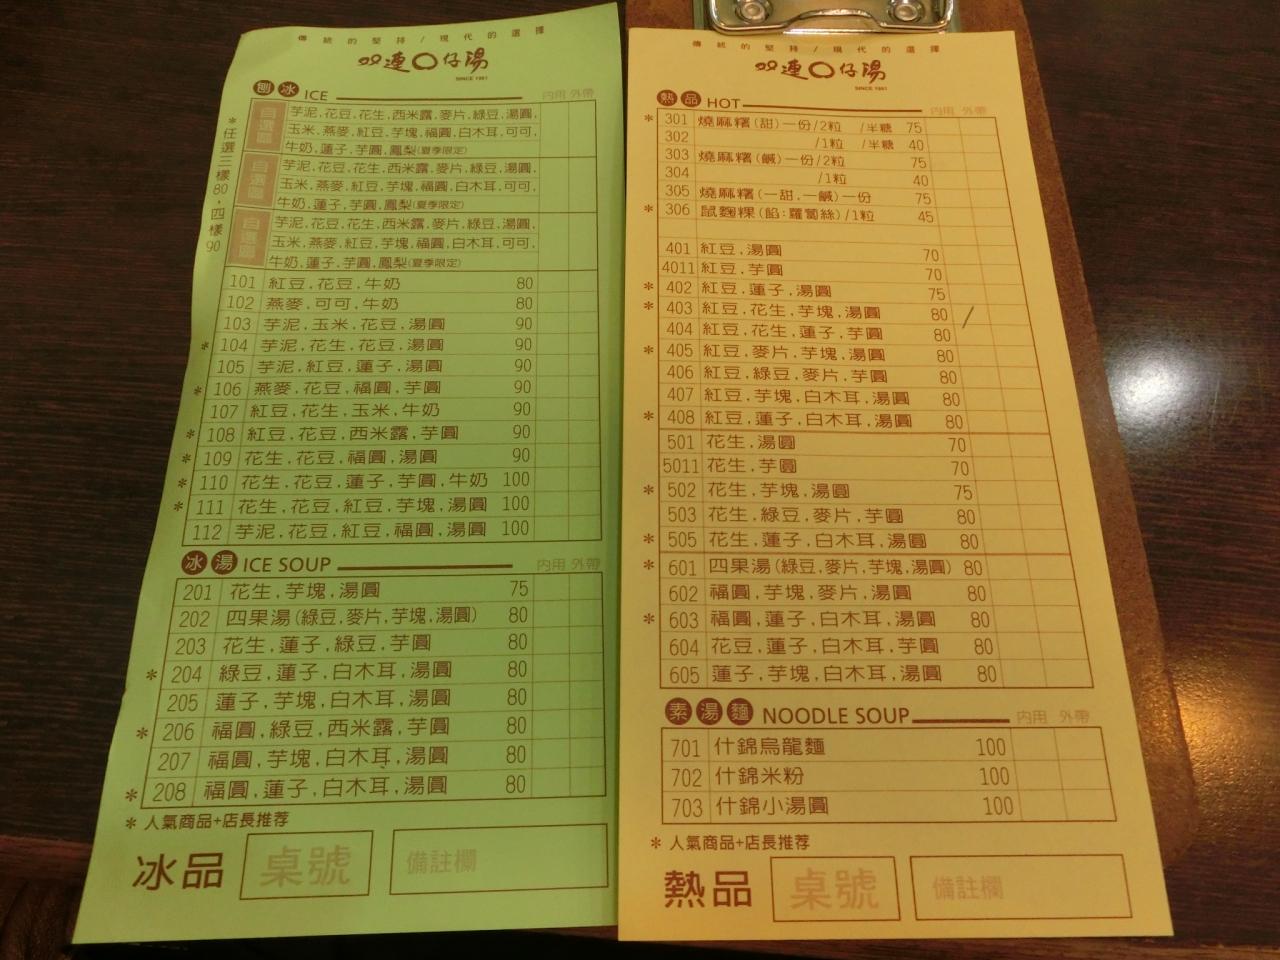 傳統的堅持/現代的選擇
双連〇仔湯
SINCE 1951
刨冰 ICE 內用 外帶
*任選三樣80、四樣90
自選區
芋泥.花豆.花生.西米露.麥片.綠豆.湯圓.
玉米.燕麥.紅豆.芋塊.福圓.白木耳.可可.
牛奶.蓮子.芋圓.鳳梨(夏季限定)
自選區
芋泥.花豆.花生.西米露.麥片.綠豆.湯圓.
玉米.燕麥.紅豆.芋塊.福圓.白木耳.可可.
牛奶.蓮子.芋圓.鳳梨(夏季限定)
自選區
芋泥.花豆.花生.西米露.麥片.綠豆.湯圓.
玉米.燕麥.紅豆.芋塊.福圓.白木耳.可可.
牛奶.蓮子.芋圓.鳳梨(夏季限定)
101 紅豆.花豆.牛奶 80
102 燕麥.可可.牛奶 80
103 芋泥.玉米.花豆.湯圓 90
* 104 芋泥.花生.花豆.湯圓 90
105 芋泥.紅豆.蓮子.湯圓 90
* 106 燕麥.花豆.福圓.芋圓 90
107 紅豆.花生.玉米.牛奶 90
* 108 紅豆.花豆.西米露.芋圓 90
* 109 花生.花豆.福圓.湯圓 90
* 110 花生.花豆.蓮子.芋圓.牛奶 100
* 111 花生.花豆.紅豆.芋塊.湯圓 100
112 芋泥.花豆.紅豆.福圓.湯圓 100
冰湯 ICE SOUP 內用 外帶
201 花生.芋塊.湯圓 75
202 四果湯(綠豆.麥片.芋塊.湯圓) 80
203 花生.蓮子.綠豆.芋圓 80
* 204 綠豆.蓮子.白木耳.湯圓 80
205 蓮子.芋塊.白木耳.湯圓 80
* 206 福圓.綠豆.西米露.芋圓 80
207 福圓.芋塊.白木耳.湯圓 80
* 208 福圓.蓮子.白木耳.湯圓 80
* 人氣商品+店長推荐
冰品 桌號 備註欄
傳統的堅持/現代的選擇
双連〇仔湯
SINCE 1951
熱品 HOT 內用 外帶
* 301 燒麻糬(甜)一份/2粒 /半糖 75
302 /1粒 /半糖 40
303 燒麻糬(鹹)一份/2粒 75
304 /1粒 40
305 燒麻糬(一甜.一鹹)一份 75
* 306 鼠麴粿(餡:蘿蔔絲)/1粒 45
401 紅豆.湯圓 70
4011 紅豆.芋圓 70
* 402 紅豆.蓮子.湯圓 75
* 403 紅豆.花生.芋塊.湯圓 80 /
404 紅豆.花生.蓮子.芋圓 80
* 405 紅豆.麥片.芋塊.湯圓 80
406 紅豆.綠豆.麥片.芋圓 80
407 紅豆.芋塊.白木耳.湯圓 80
* 408 紅豆.蓮子.白木耳.湯圓 80
501 花生.湯圓 70
5011 花生.芋圓 70
* 502 花生.芋塊.湯圓 75
503 花生.綠豆.麥片.芋圓 80
* 505 花生.蓮子.白木耳.湯圓 80
* 601 四果湯(綠豆.麥片.芋塊.湯圓) 80
602 福圓.芋塊.麥片.湯圓 80
* 603 福圓.蓮子.白木耳.湯圓 80
604 花豆.蓮子.白木耳.芋圓 80
605 蓮子.芋塊.白木耳.湯圓 80
素湯麵 NOODLE SOUP 內用 外帶
701 什錦烏龍麵 100
702 什錦米粉 100
703 什錦小湯圓 100
* 人氣商品+店長推荐
熱品 桌號 備註欄